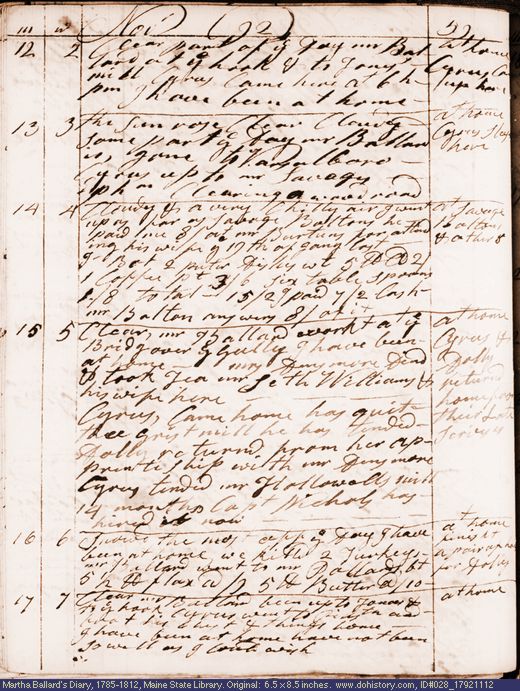 m w Nov 1792
12 2 Clear part of ye Day mr Bal at home
lard at ye hook & to Jones Cyrus
mill Cyrus Came here at 6 h
pm I have been at home
13 3 the sun rose Clear Clowdy at home
some part of ye Day mr Ballard Cyrus sleept
is gone to Vassulboro here
Cyrus up to mr Savages
Clearing a wood road
14 4 Clowdy & a very Chilly air I went at Savage
up as far as Savage Boltons he Boltons
paid me 8/ at mr Burtins for attend & other
ing his wife ye 17th of august last
I Bot 2 puter Dishes wt 5 lb
1 Coffee Pot 3/6 six table spoons
total 15/2 I paid 7/2 Cash
mr Bolton answerd 8/ of it
15 5 Clear mr Ballard workt at ye at home
Bridg over ye Gully I have been Cyrus &
at home mrs Densmore Dind Dolly
& took Tea mr Seth Williams & returnd
his wife here home from
Cyrus Came home has quit their late
the grist mill he has tended services
Dolly returnd from her ap-
printiship with mr Densmore
Cyrus tended mr Hollowells mill
14 months Capt Nichols has
hired it now
16 6 the most of ye Day I have at home
been at home we killd 2 Turkeys finisht
mr Ballard went to mr Pollards Bt a pair
5 lb flax a 5 lb Butter a /10 for Dolly
17 7 Clear mr Ballard been up to Jones & at home
ye hook Cyrus went to
his things home
I have been at home have not been
so well as I Could wish
Martha Ballard's Diary, 1785-1812, Maine State Library. Original: 6.5 x 8.5 inches. www.dohistory.com, ID#028_17921112